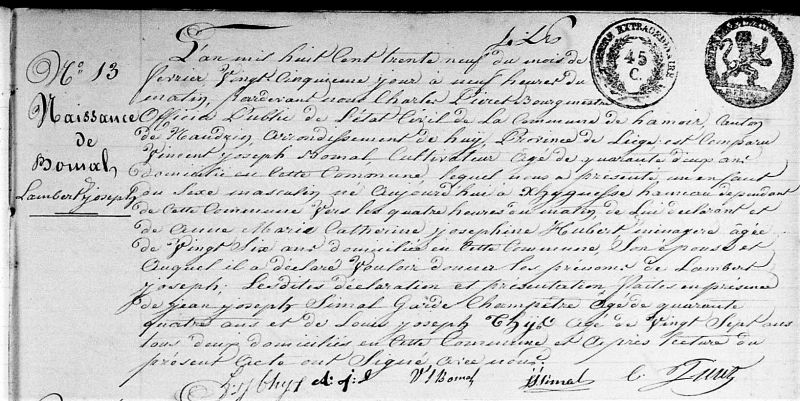 N° 13
Naissance
de
Bomal
Lambert joseph
EXTRAORDINAIRE
45
C.
L'an mil huit Cent trente neuf du mois de
fevrier Vingt Cinquieme jour à neuf heures du
matin, Pardevant nous Charles Bourgmestre
Officier Public de l'état Civil de La Commune de hamoir, Canton
de Nandrin, arrondissement de huy, Province de Liege, est Comparu
Vincent joseph Bomal, Cultivateur agé de quarante deux ans
domicilié en Cette Commune, lequel nous a présenté un enfant
du Sexe masculin né aujourd'hui à Xhygnesse hameau dependant
de Cette Commune Vers les quatre heures du matin, de Lui declarant et
de Anne Marie Catherine josephine Hubert menagere agée
de Vingt Six ans domiciliée en Cette Commune, Son épouse et
Auquel il a déclaré Vouloir donner les prénoms de Lambert
joseph; Lesdites déclaration et présentation faites en presence
de jean joseph Simal Garde Champetre agé de quarante
quatre ans et de Louis joseph Thys agé de Vingt Sept ans
tous deux domiciliés en Cette Commune et après lecture du
présent Acte ont Signé avec nous.
V J Bomal
jj Simal